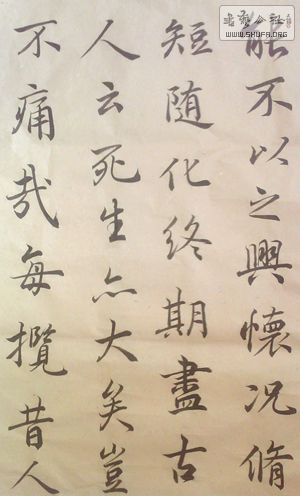 能不以之興懷況脩
短随化終期盡古
人云死生亦大矣豈
不痛哉每攬昔人
WWW.SHUFA.ORG